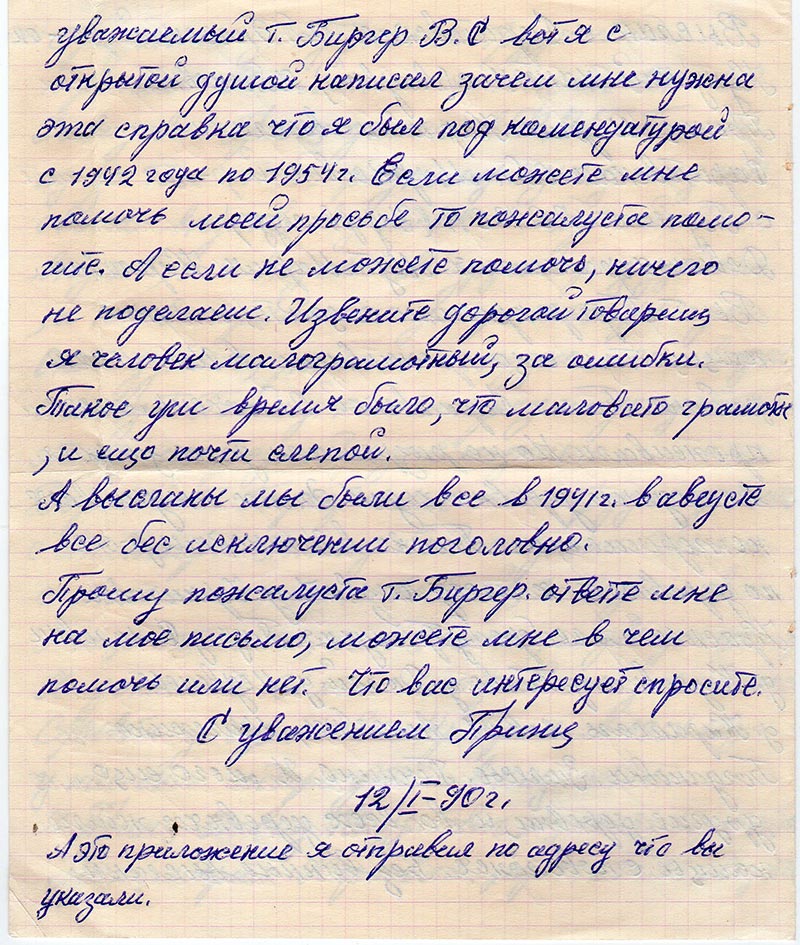 уважаемый т. Биргер В.С вот я с
открытой душой написал зачем мне нужна
эта справка что я был под комендатурой
с 1942 года по 1954г. Если можете мне
помочь моей просьбе то пожалуста помо-
гите. А если не можете помочь, ничего
не поделаеш. Извените дорогой товарищ
я человек малограмотный, за ошибки.
Такое уш время было, что маловато грамоты
, и ещо почти слепой.
А высланы мы были все в 1941г. в августе
все бес исключении поголовно.
Прошу пожалуста т. Биргер. ответте мне
на мое письмо, можете мне в чем
помочь или нет. Что вас интересует спросите.
С уважением Принц
12/I-90г.
А это приложение я отправил по адресу что вы
указали.